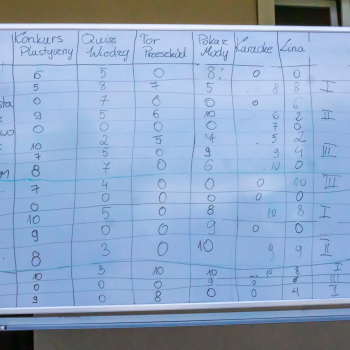 Konkurs Plastyczny Quiz Wiedzy Tor Przeszkód Pokaz Mody Karaoke Lina
6 5 0 8 0 0
5 8 7 5 8 8 I
0 7 0 0 0 6
9 5 6 10 6 2 II
0 0 0 0 7 0
10 2 5 4 5 2
7 5 0 9 9 4 III
8 7 0 6 10 0
7 4 0 0 0 10 III
0 0 0 0 0 0
10 5 0 8 10 8 I
9 0 0 9 0 0
8 3 0 10 9 9 II
10 3 10 10 10 8 I
0 0 0 9 0 III
9 0 8 0 0 4